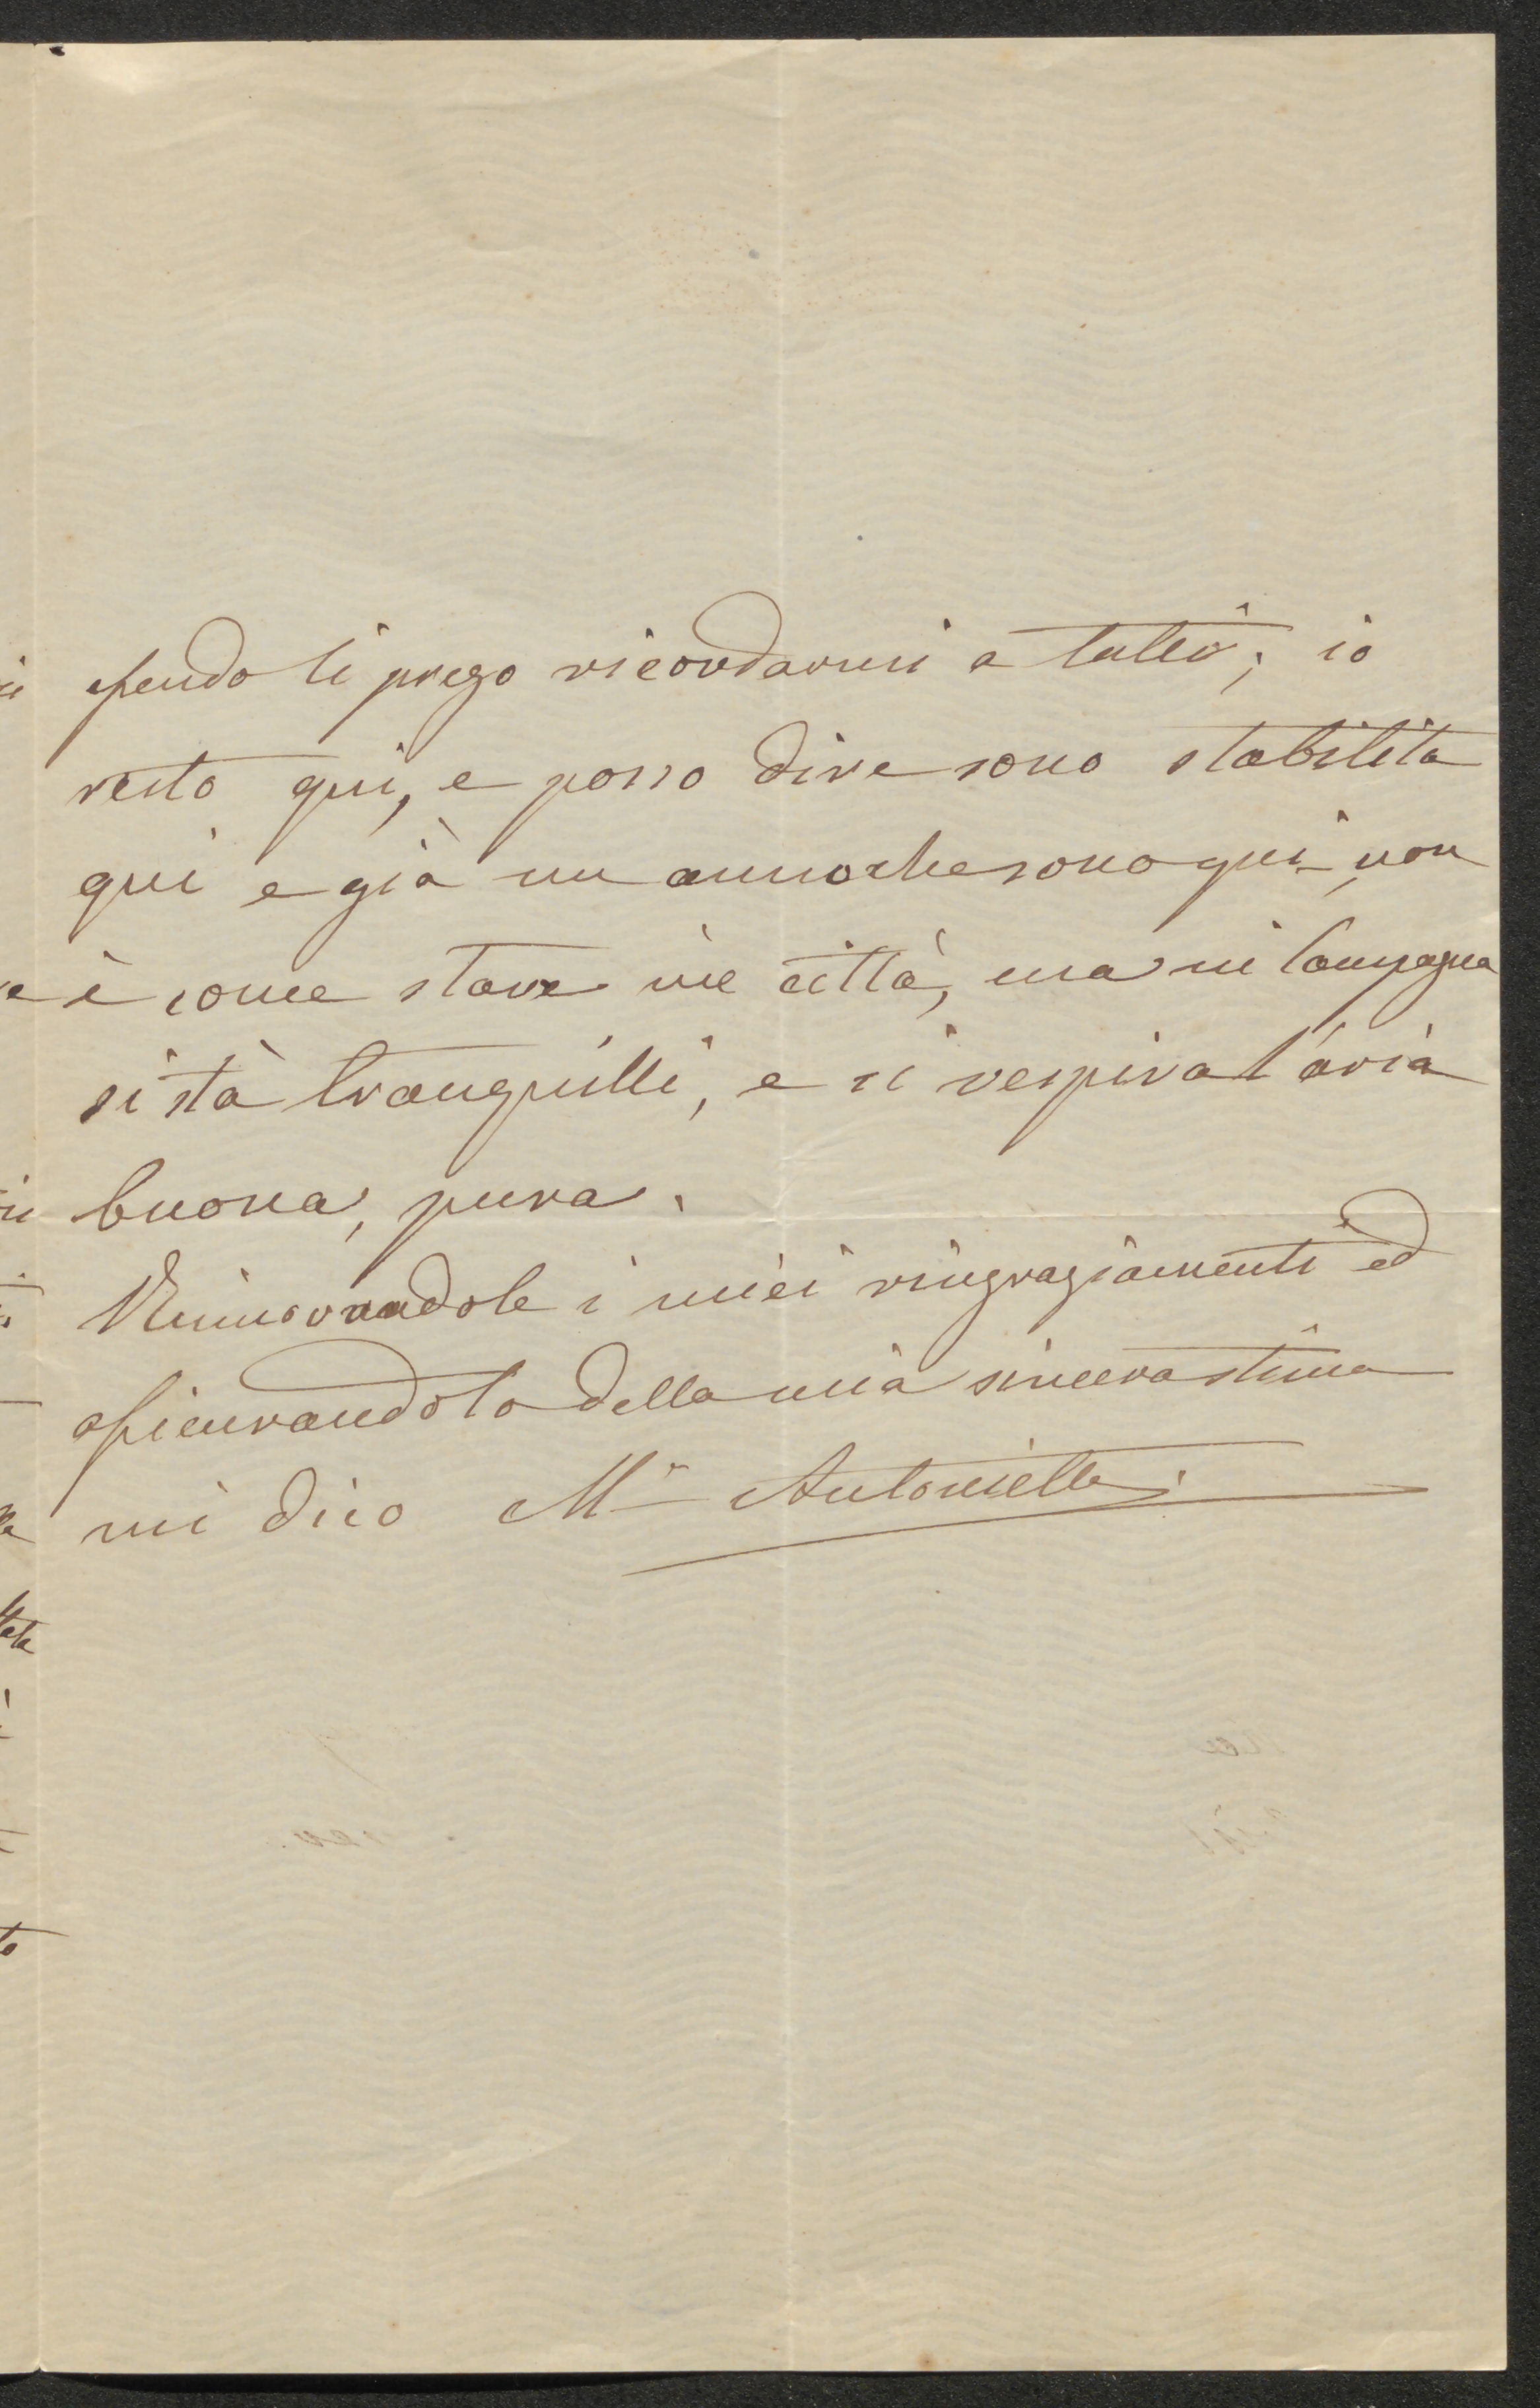 essendo li prego ricordarmi a tutti; io
resto qui, e posso dire sono stabilita
qui e già un anno che sono qui, non
è come stare in città, ma in Campagna
si stà tranquilli, e si respira l'aria
buona, pura.
Rinnovandole i miei ringraziamenti ed
assicurandola della mia sincera stima
mi dico M Antonietta